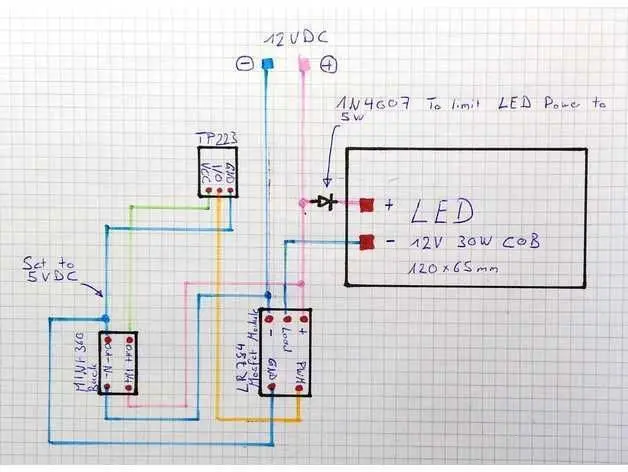 12VDC
⊖ ⊕
1N4007 To limit LED Power to
5W
TP223
VCC I/O GND
+ LED
- 12V 30W COB
120x65mm
Set to
5VDC
MINI360
Buck
LR784
Mosfet Module
- Load +
GND PWM
IN+